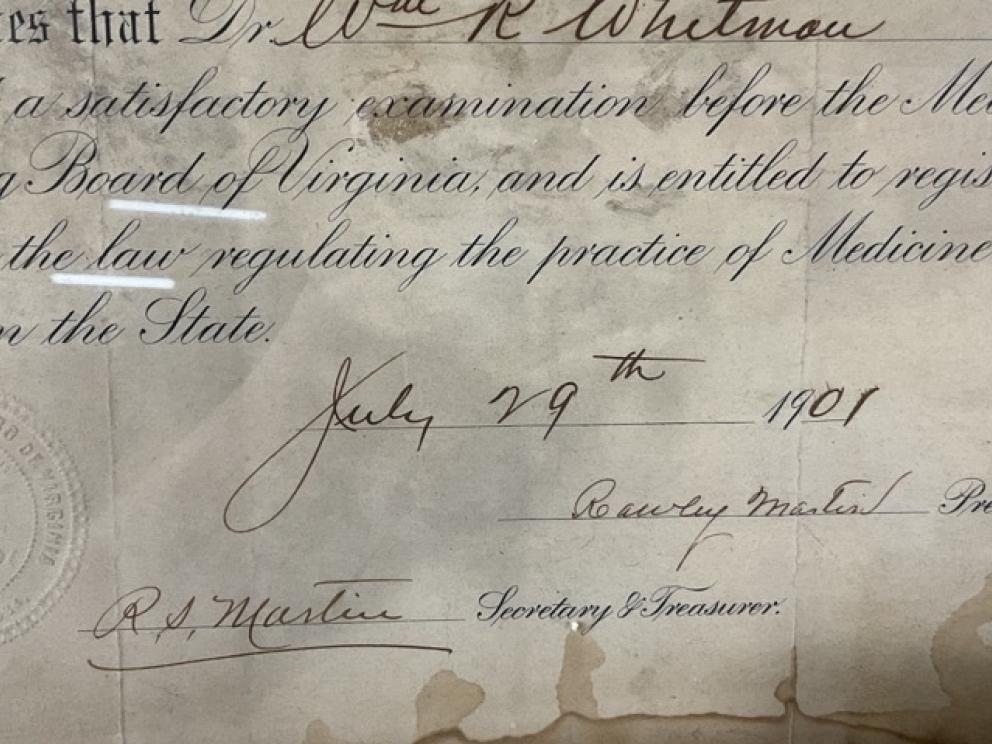 es that Dr. Wm R Whitman
a satisfactory examination before the Med
g Board of Virginia, and is entitled to regis
the law regulating the practice of Medicine
n the State.
July 29th 1901
Rawley Martin Pre
R. S. Martin Secretary & Treasurer.